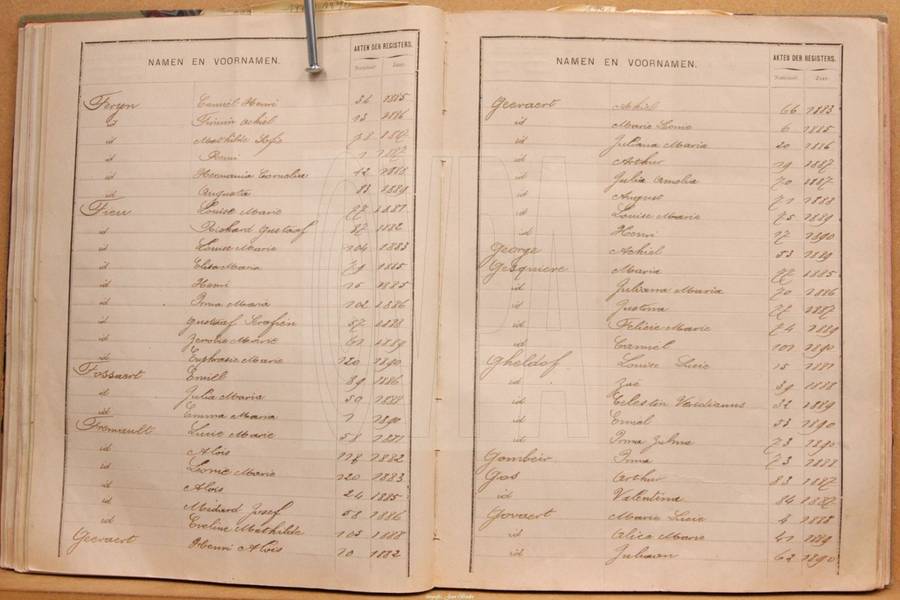 NAMEN EN VOORNAMEN. AKTEN DER REGISTERS.
Nummer Jaar
Feryn Camiel Henri 36 1885
id Firmin Achiel 13 1886
id Mathilde Sofie 78 1887
id Remi 1 1887
id Hermania Cornelia 12 1888
id Augusta 83 1889
Fieu Louise Marie 77 1881
id Richard Gustaaf 87 1882
id Louise Marie 104 1883
id Elisa Maria 79 1885
id Henri 15 1885
id Irma Maria 102 1886
id Gustaaf Serafien 57 1888
id Zenobie Marie 61 1889
id Euphrasie Marie 120 1890
Fossaert Emiel 89 1886
id Julia Maria 59 1888
id Emma Maria 1 1890
Fremault Lucie Marie 58 1881
id Alois 118 1882
id Leonie Marie 120 1883
id Alois 24 1885
id Medard Josef 58 1886
id Eveline Mathilde 103 1888
Geevaert Henri Alois 10 1882
NAMEN EN VOORNAMEN. AKTEN DER REGISTERS.
Nummer Jaar
Geevaert Achiel 66 1883
id Marie Leonie 6 1885
id Juliana Maria 20 1886
id Arthur 19 1887
id Julia Amelia 70 1887
id August 71 1888
id Louise Marie 75 1889
id Henri 17 1890
George Achiel 53 1889
Gesquiere Maria 77 1885
id Juliana Maria 70 1886
id Justina 77 1887
id Felicie Marie 74 1889
id Camiel 101 1890
Gheldof Louise Lucie 15 1881
id 39 1888
id Celestin Veridianus 32 1889
id Emiel 53 1890
id Irma Zulma 73 1890
Gombeir Irma 73 1888
Gos Arthur 83 1887
id Valentina 84 1887
Govaert Marie Lucie 4 1888
id Alice Marie 41 1889
id Juliaan 62 1890